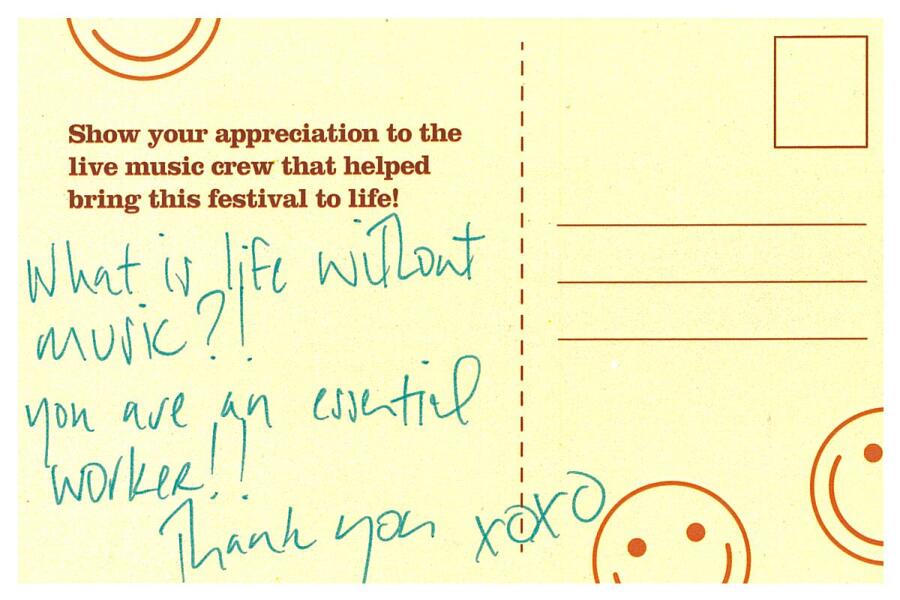 Show your appreciation to the
live music crew that helped
bring this festival to life!
What is life without
music?!
you are an essential
worker!!
Thank you xoxo